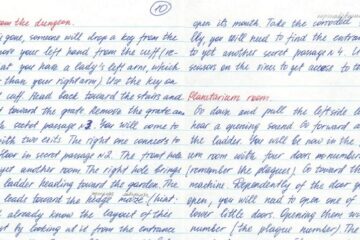 from the dungeon.
gone, someone will drop a key from the
your left hand from the cuff (re-
at you have a lady's left arm, which
than your right arm) Use the key on
cuff. Head back toward the stairs and
toward the grate. Remove the grate and
secret passage №3. You will come to
with two exits. The right one connects to
floor in secret passage №2. The front hole
yet another room. The right hole brings
ladder heading toward the garden. The
leads toward the hedge maze (hint:
already know the layout of this
by looking at it from the entrance
10
open its mouth. Take the
lly, you will need to find the entran
to yet another secret passage №4.
scissors on the vines to get access to
Planetarium room.
Go down and pull the left side
hear a opening sound. Go forward
the ladder. You will be now in the p
um room with four doors numbere
(remember the plagues). Go toward th
machine. Dependently of the door y
open, you will need to open one of
lower little doors. Opening them
number (the plague number). The